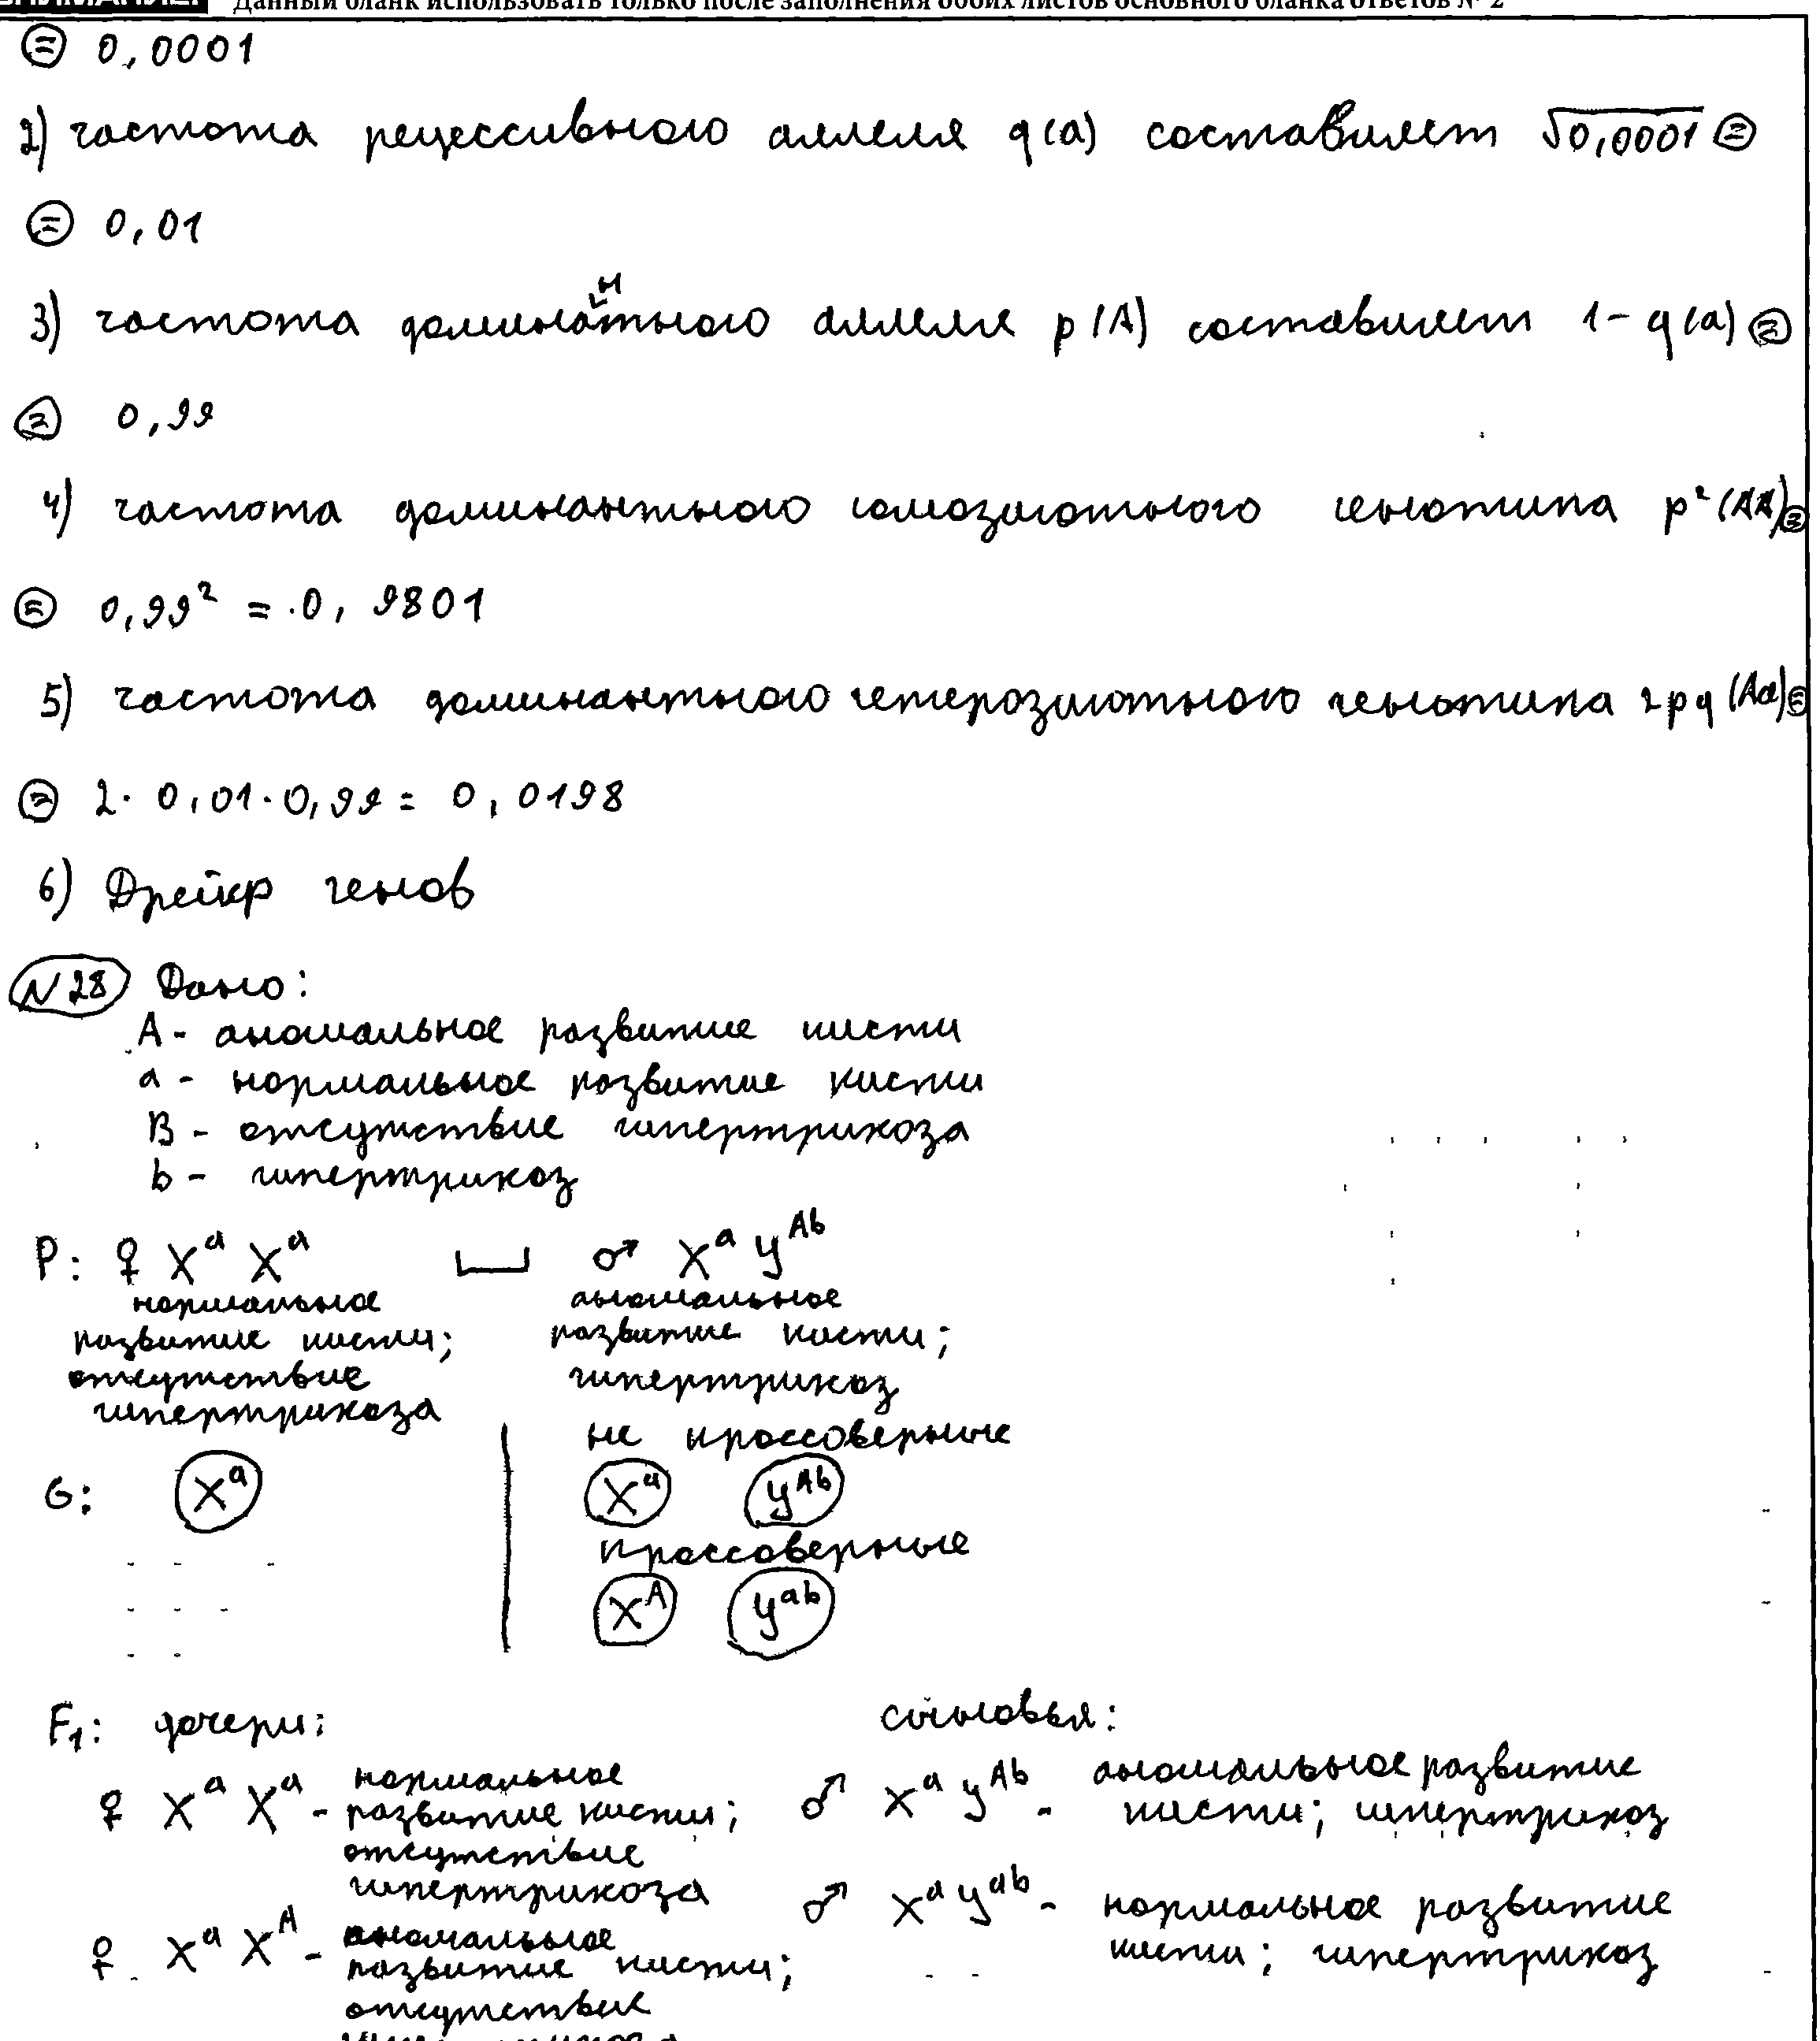 Данный бланк использовать только после заполнения обоих листов основного бланка ответов № 2
= 0,0001
2) частота рецессивного аллеля q(a) составляет √0,0001 =
= 0,01
3) частота доминатного аллеля p(A) составляет 1 - q(a) =
н
= 0,99
4) частота доминантного гомозиготного генотипа p²(AA) =
= 0,99² = 0,9801
5) частота доминантного гетерозиготного генотипа 2pq (Aa) =
= 2 · 0,01 · 0,99 = 0,0198
6) Дрейф генов
N 28 Дано:
A - аномальное развитие кисти
a - нормальное развитие кисти
B - отсутствие гипертрихоза
b - гипертрихоз
P: ♀ XᵃXᵃ ♂ XᵃYᴬᵇ
нормальное развитие кисти; отсутствие гипертрихоза
аномальное развитие кисти; гипертрихоз
не кроссоверные
G: Xᵃ Xᵃ Yᴬᵇ
кроссоверные
Xᴬ Yᵃᵇ
F₁: дочери: сыновья:
♀ XᵃXᵃ - нормальное развитие кисти; отсутствие гипертрихоза
♂ XᵃYᴬᵇ - аномальное развитие кисти; гипертрихоз
♂ XᵃYᵃᵇ - нормальное развитие кисти; гипертрихоз
♀ XᵃXᴬ - аномальное развитие кисти; отсутствие